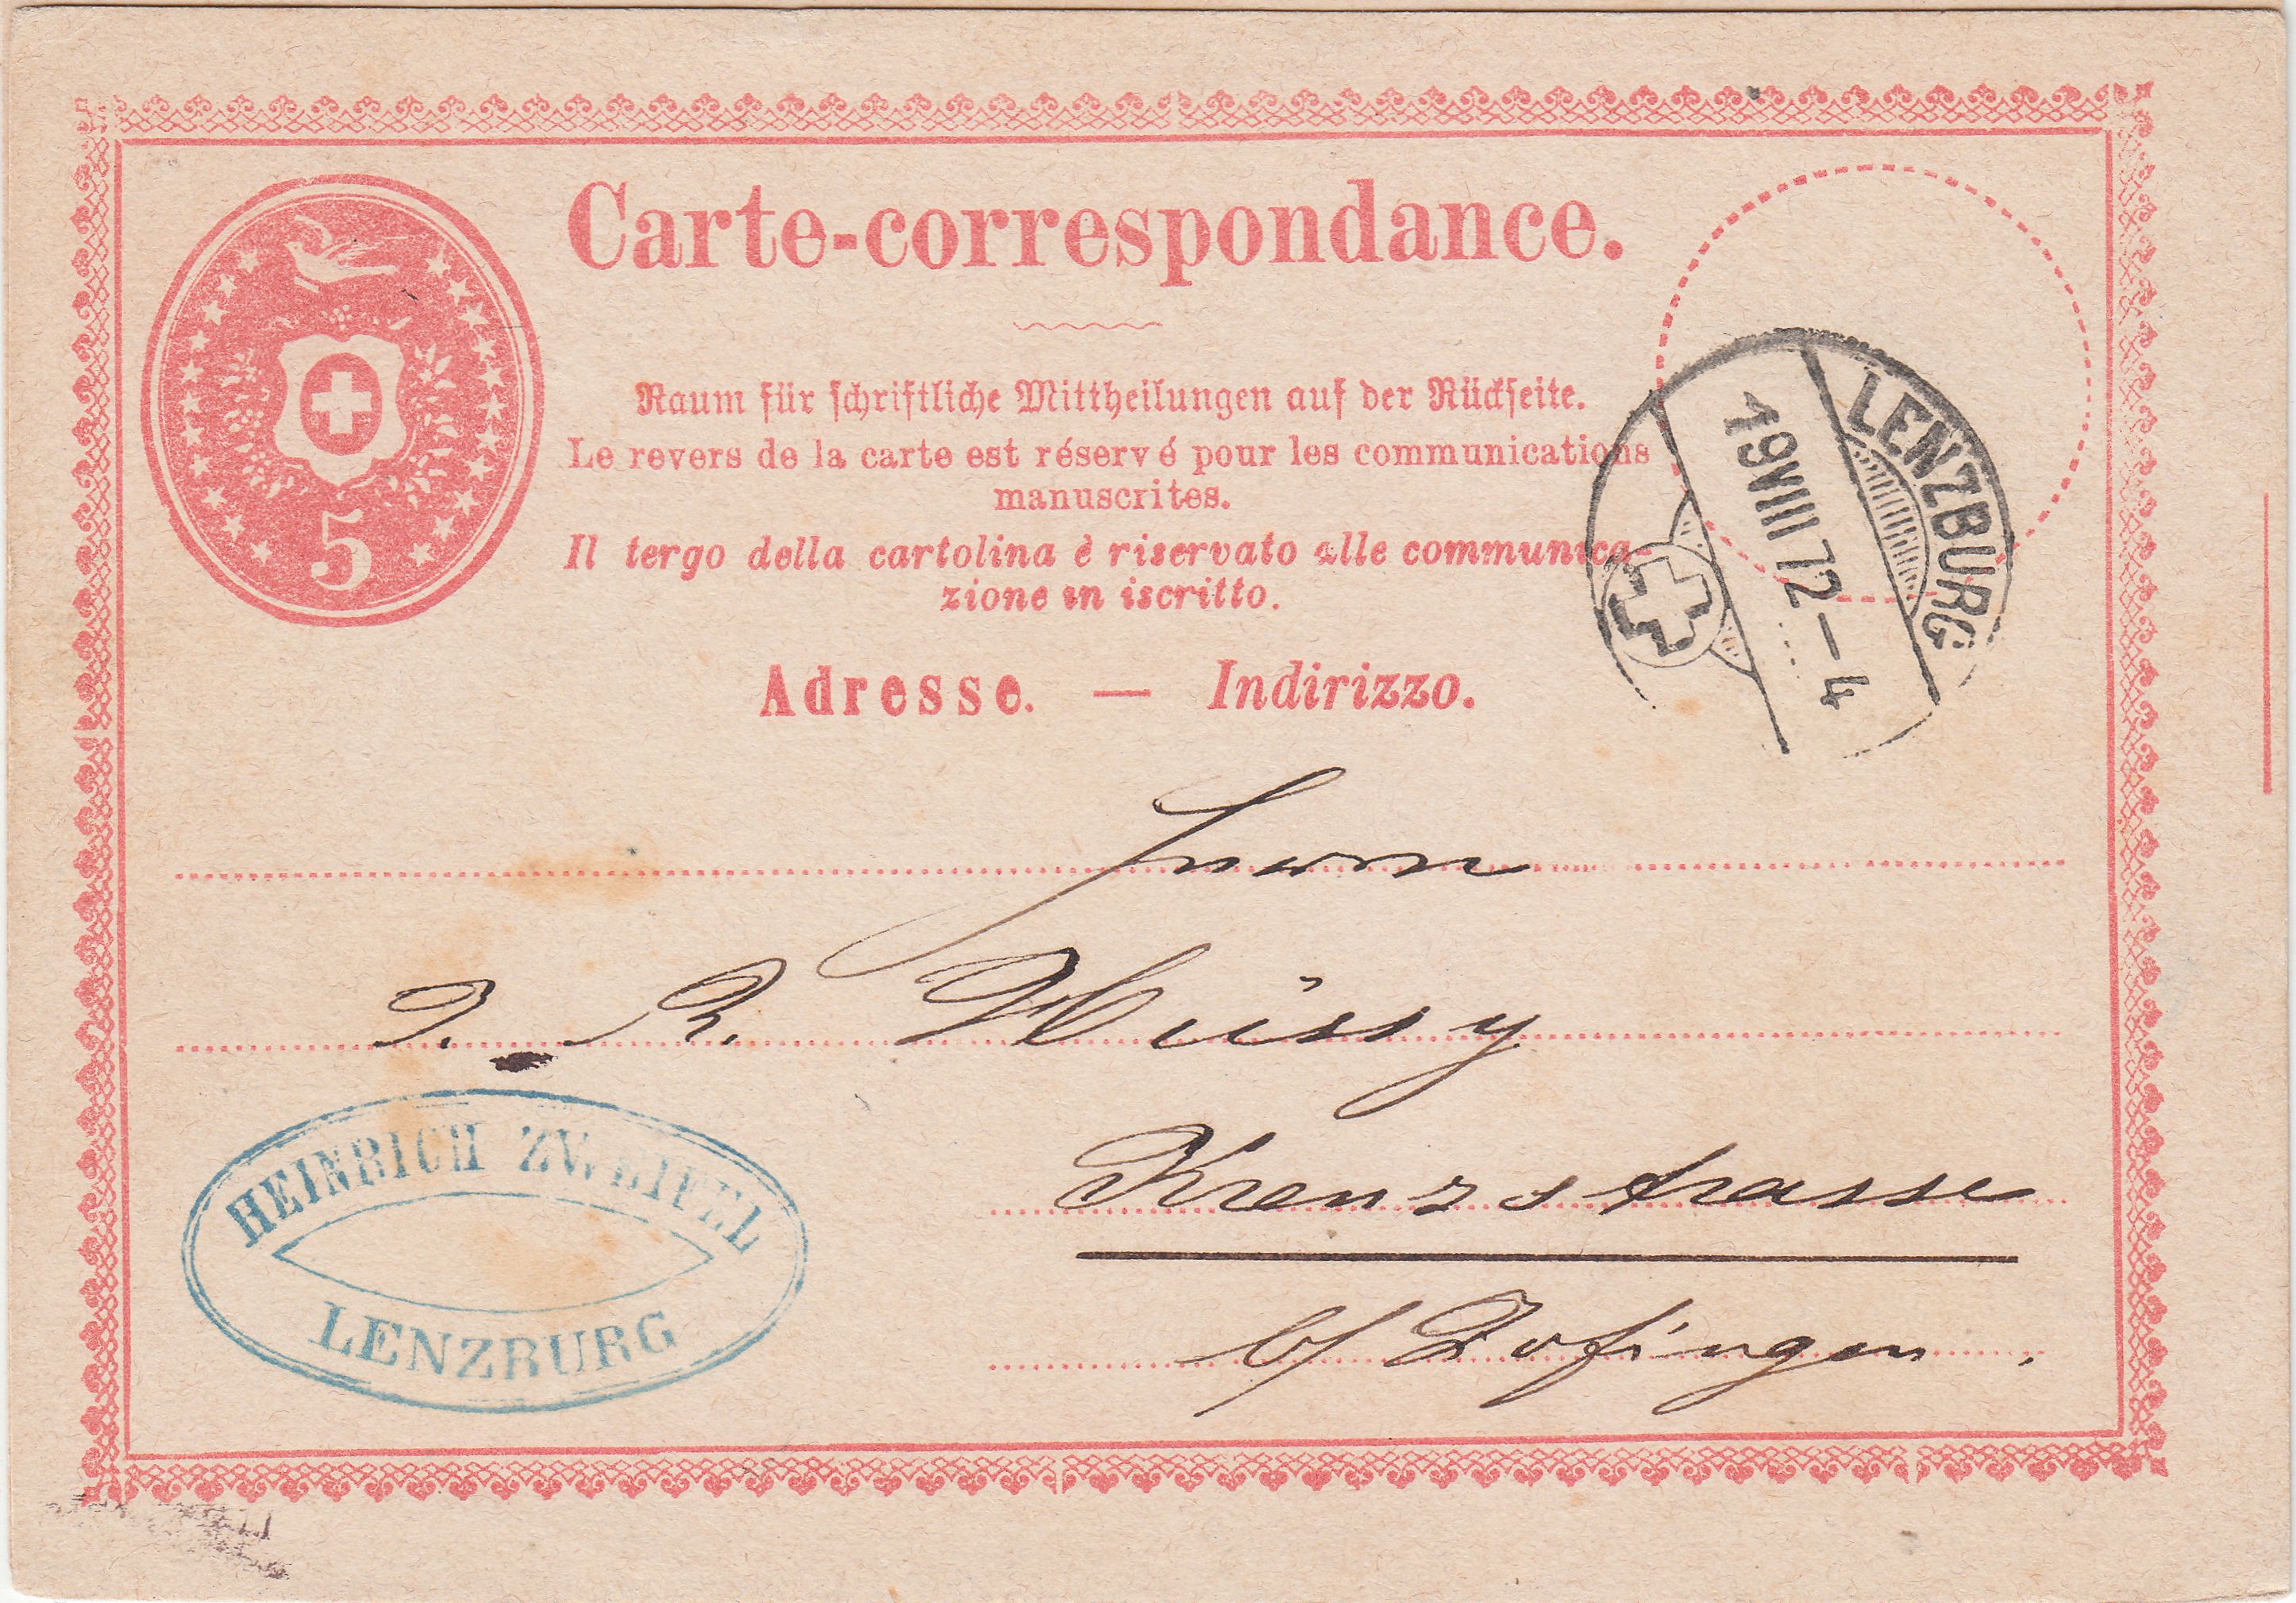 Carte-correspondance.
Raum für schriftliche Mittheilungen auf der Rückseite.
Le revers de la carte est réservé pour les communications
manuscrites.
Il tergo della cartolina è riservato alle communica-
zione in iscritto.
5
LENZBURG
19 VIII 72 – 4
Adresse. — Indirizzo.
Herrn
J. R. Hüssy
Kreuzstrasse
b/ Zofingen.
HEINRICH ZWEIFEL
LENZBURG